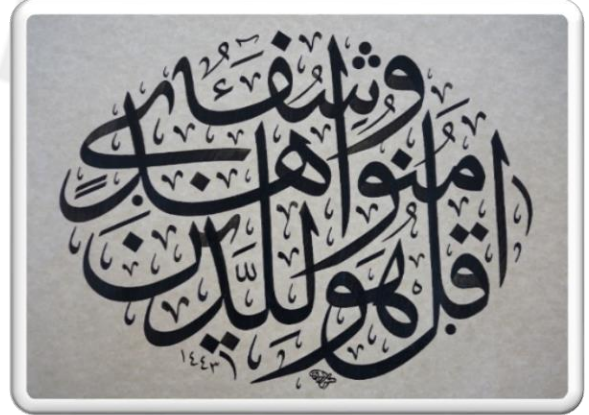 قل هو للذين
آمنوا هدى
وشفاء
١٤٤٣